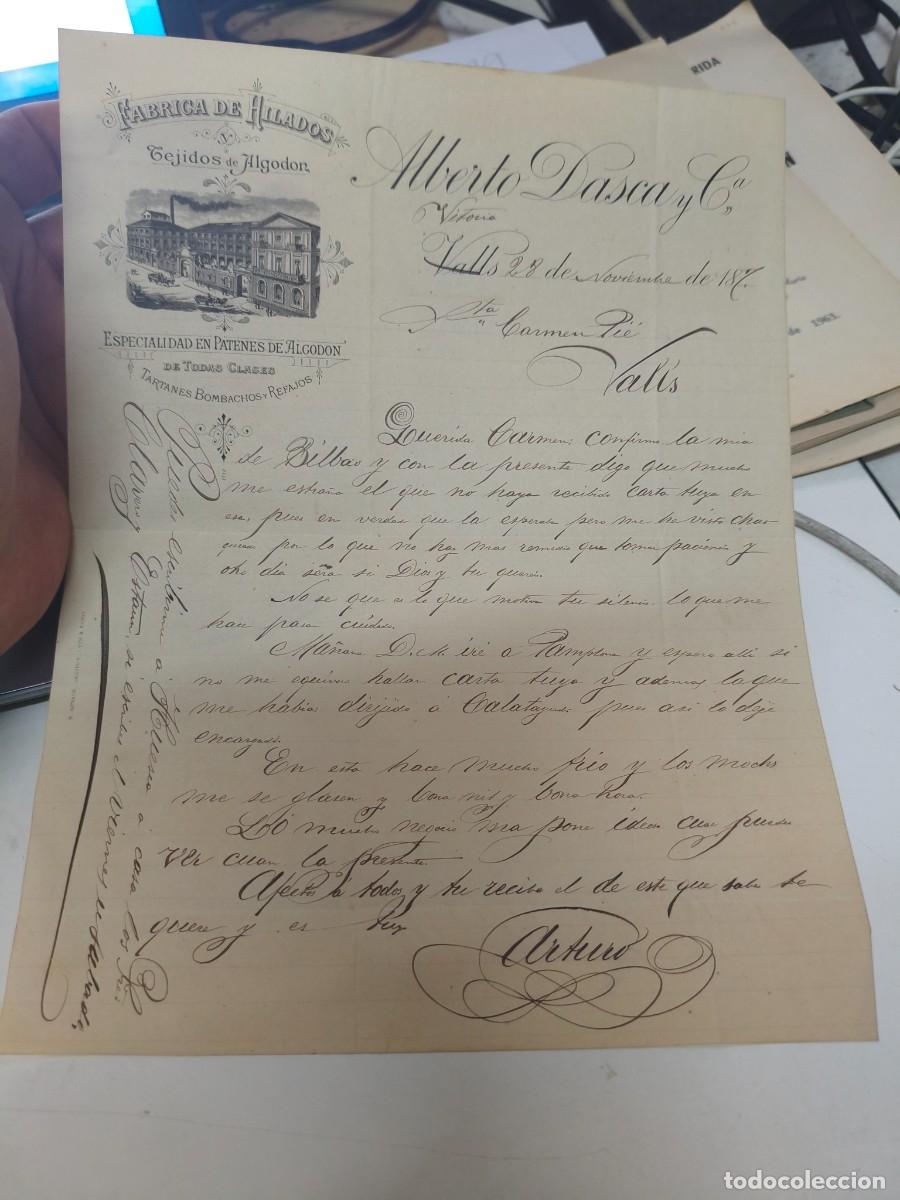 FABRICA DE HILADOS
Y
Tejidos de Algodon
ESPECIALIDAD EN PATENES DE ALGODON
DE TODAS CLASES
TARTANES BOMBACHOS Y REFAJOS
Alberto Dasca y Cª
Vitoria
Valls 23 de Noviembre de 187
Sta Carmen Pié
Valls
Querida Carmen; confirmo la mia
de Bilbao y con la presente digo que mucho
me estraña el que no haya recibido carta tuya en
esa, pues en verdad que la esperaba pero me he visto chas
queado por lo que no hay mas remedio que tomar paciencia y
otro dia sera si Dios y tu quereis.
No se que es lo que motiva tu silencio lo que me
hace pasar cuidado.
Mañana D. M. iré a Pamplona y espero alli si
no me equivoco hallar carta tuya y ademas la que
me habias dirijido á Calatayud pues asi lo dejé
encargado.
En esta hace mucho frio y los mochs
me se glasen y bona nit y bona hora.
mucho negocio pone ideas
ver cuan la presente.
Afectos a todos y tu recibe el de este que sabe te
quiere y es tuyo
Arturo
Puedes escribirme á Huesca á casa los Sres
Claver y si escribes el Viernes u Sabado.
RIDA
de 1963.
todocoleccion